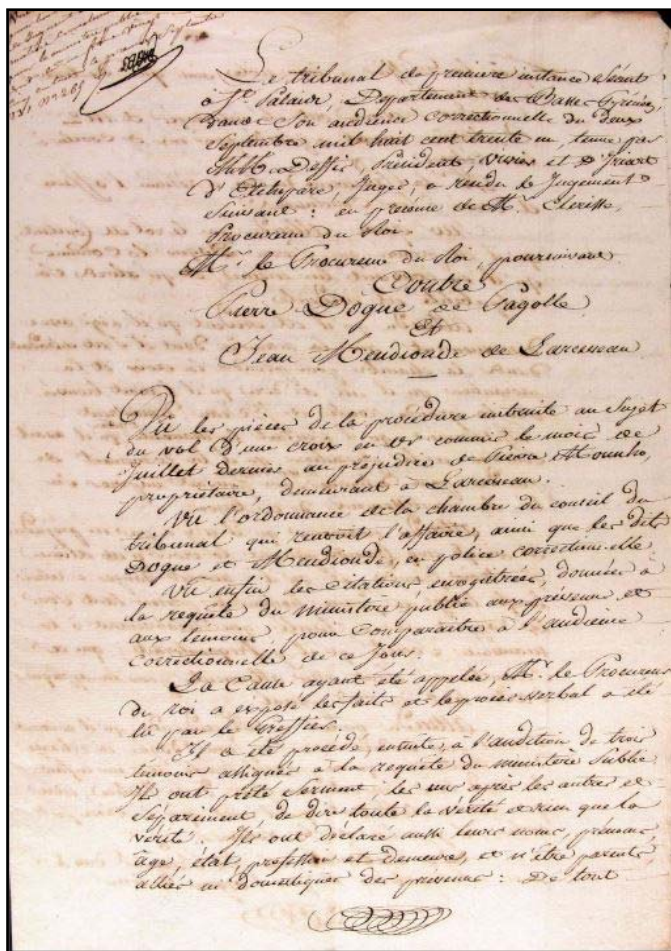 Le tribunal de première instance séant
à St. Palais, Département des Basses Pyrénées
dans son audience correctionnelle du deux
Septembre mil huit cent trente un, tenue par
MM. Deffis, Président, Vivier et D'Iriart
d'Etchepare, Juges, a rendu le Jugement
Suivant : en présence de Mr. Clerisse,
Procureur du Roi.
Mr. le Procureur du Roi, poursuivant
Contre
Pierre Dogue de Pagolle
Et
Jean Mendionde de Larceveau
Vu les pièces de la procédure instruite au Sujet
du vol d'une croix en or commis le mois de
Juillet dernier au préjudice de Pierre
propriétaire, demeurant à Larceveau.
Vu l'ordonnance de la chambre du conseil du
tribunal qui renvoit l'affaire, ainsi que les dits
Dogue et Mendionde, en police correctionnelle
Vu enfin les citations, enregistrées, données à
la requête du ministère public aux prévenus et
aux temoins, pour comparaitre à l'audience
correctionnelle de ce Jour.
La Cause ayant été appelée, Mr. le Procureur
du roi a exposé les faits et le procès verbal a été
lu par le Greffier.
Il a été procédé, ensuite, a l'audition de trois
temoins assignés à la requête du ministère public
Ils ont prété Serment, les uns après les autres et
Séparément, de dire toute la vérité et rien que la
vérité. Ils ont déclaré aussi leurs noms, prénoms,
age, état, profession et demeure, et n'être parents,
alliés ni domestiques des prévenus : De tout